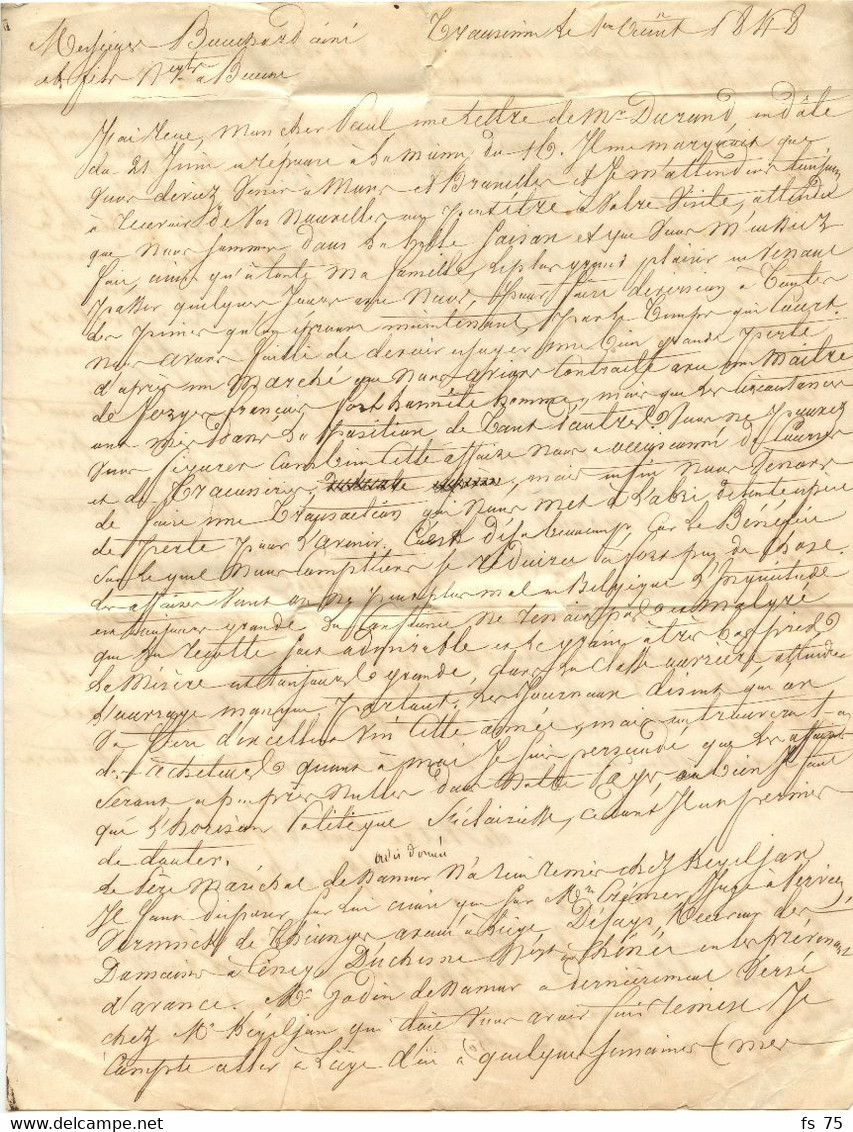 Messieurs Bouchard ainé le 1er Août 1848
et fils Négts à Beaune
J'ai reçu, mon cher Paul, une lettre de Mr Durand, en date
du 21 Juin en réponse à la mienne du 16. Il me marquait que
vous deviez venir à Mons et Bruxelles et je m'attendais toujours
à recevoir de vos nouvelles ou peut-être à votre visite, attendu
que nous sommes dans la belle saison et que vous m'auriez
fait, ainsi qu'à toute ma famille, le plus grand plaisir en venant
passer quelques jours avec nous, pour faire diversion à toutes
les peines qu'on éprouve maintenant, par le temps qui court.
nous avons failli de devoir essuyer une bien grande perte
d'après un marché que nous avions contracté avec un Maître
de forges français, fort honnête homme, mais que les circonstances
ont mis dans la position de tant d'autres. Vous ne pouvez
vous figurer combien cette affaire nous a occasionné de courses
et de , mais enfin nous venons
de faire une transaction qui nous met à l'abri de toute espèce
de perte pour l'avenir. C'est déjà beaucoup, car le Bénéfice
sur lequel nous comptions se réduira à fort peu de chose.
les affaires vont on ne peut plus mal en Belgique. L'inquiétude
est toujours grande. La confiance ne renait pas et malgré
que la récolte soit admirable et les grains à très bas prix,
la misère est toujours grande, dans la classe ouvrière, attendu
l'ouvrage manque partout. Les Journaux disent qu'on
va faire d'excellent vin cette année, mais en trouverez-vous
des acheteurs? quant à moi je suis persuadé que les affaires
seront à peu près nulles dans notre Pays, ou bien il faut
que l'horison Politique s'éclaircisse, ce dont il est permis
de douter.
avis donné
le Père Maréchal de Namur n'a rien remis chez Kegeljan
Il faut disposer sur lui ainsi que sur Mr Crémer, Juge à Verviers,
de avoué à Liège, Defays, Receveur des
Domaines à Ciney, Duchesne à Chénée en les prévenant
d'avance. Mr Godin de Namur a dernièrement versé
chez Mr Kegeljan qui doit vous avoir fait remise. Je
compte aller à Liège d'ici à quelques semaines (mes
fs 75